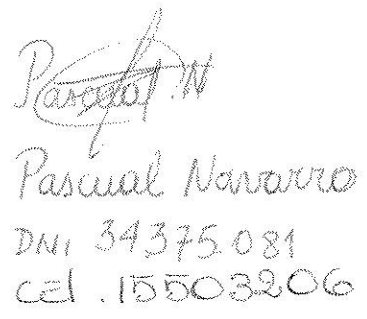 Pascual .N
Pascual Navarro
DNI 34375081
cel .15503206